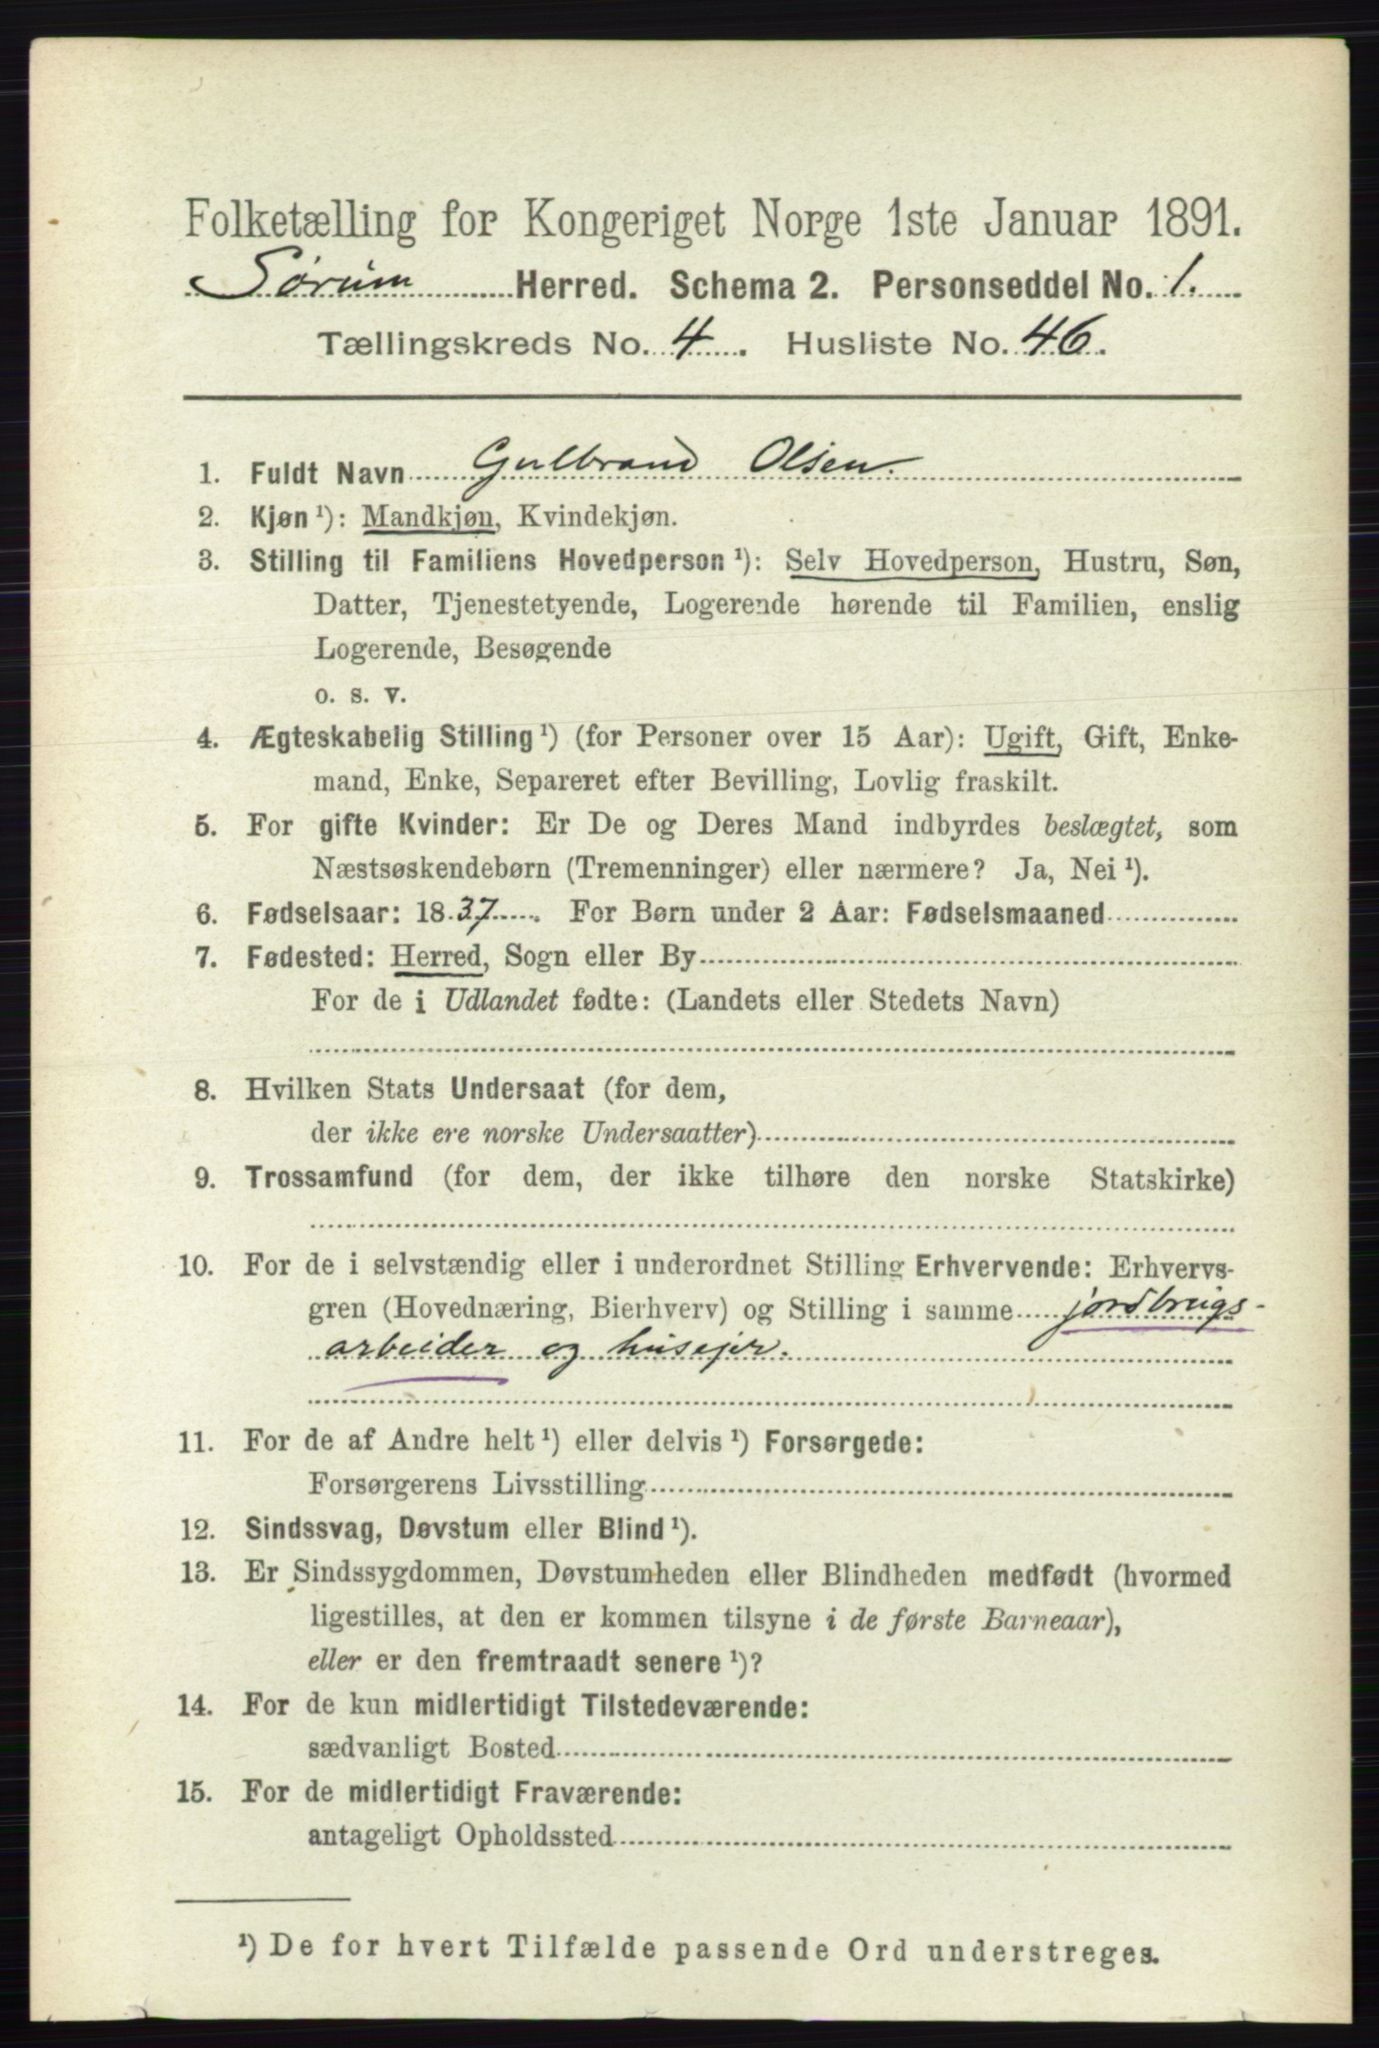 Folketælling for Kongeriget Norge 1ste Januar 1891.
Sørum Herred. Schema 2. Personseddel No. 1.
Tællingskreds No. 4. Husliste No. 46.
1. Fuldt Navn Gulbrand Olsen.
2. Kjøn ¹): Mandkjøn, Kvindekjøn.
3. Stilling til Familiens Hovedperson ¹): Selv Hovedperson, Hustru, Søn,
Datter, Tjenestetyende, Logerende hørende til Familien, enslig
Logerende, Besøgende
o. s. v.
4. Ægteskabelig Stilling ¹) (for Personer over 15 Aar): Ugift, Gift, Enke-
mand, Enke, Separeret efter Bevilling, Lovlig fraskilt.
5. For gifte Kvinder: Er De og Deres Mand indbyrdes beslægtet, som
Næstsøskendebørn (Tremenninger) eller nærmere? Ja, Nei ¹).
6. Fødselsaar: 1837. For Børn under 2 Aar: Fødselsmaaned
7. Fødested: Herred, Sogn eller By
For de i Udlandet fødte: (Landets eller Stedets Navn)
8. Hvilken Stats Undersaat (for dem,
der ikke ere norske Undersaatter)
9. Trossamfund (for dem, der ikke tilhøre den norske Statskirke)
10. For de i selvstændig eller i underordnet Stilling Erhvervende: Erhvervs-
gren (Hovednæring, Bierhverv) og Stilling i samme jordbrugs-
arbeider og husejer.
11. For de af Andre helt ¹) eller delvis ¹) Forsørgede:
Forsørgerens Livsstilling
12. Sindssvag, Døvstum eller Blind ¹).
13. Er Sindssygdommen, Døvstumheden eller Blindheden medfødt (hvormed
ligestilles, at den er kommen tilsyne i de første Barneaar),
eller er den fremtraadt senere ¹)?
14. For de kun midlertidigt Tilstedeværende:
sædvanligt Bosted
15. For de midlertidigt Fraværende:
antageligt Opholdssted
¹) De for hvert Tilfælde passende Ord understreges.